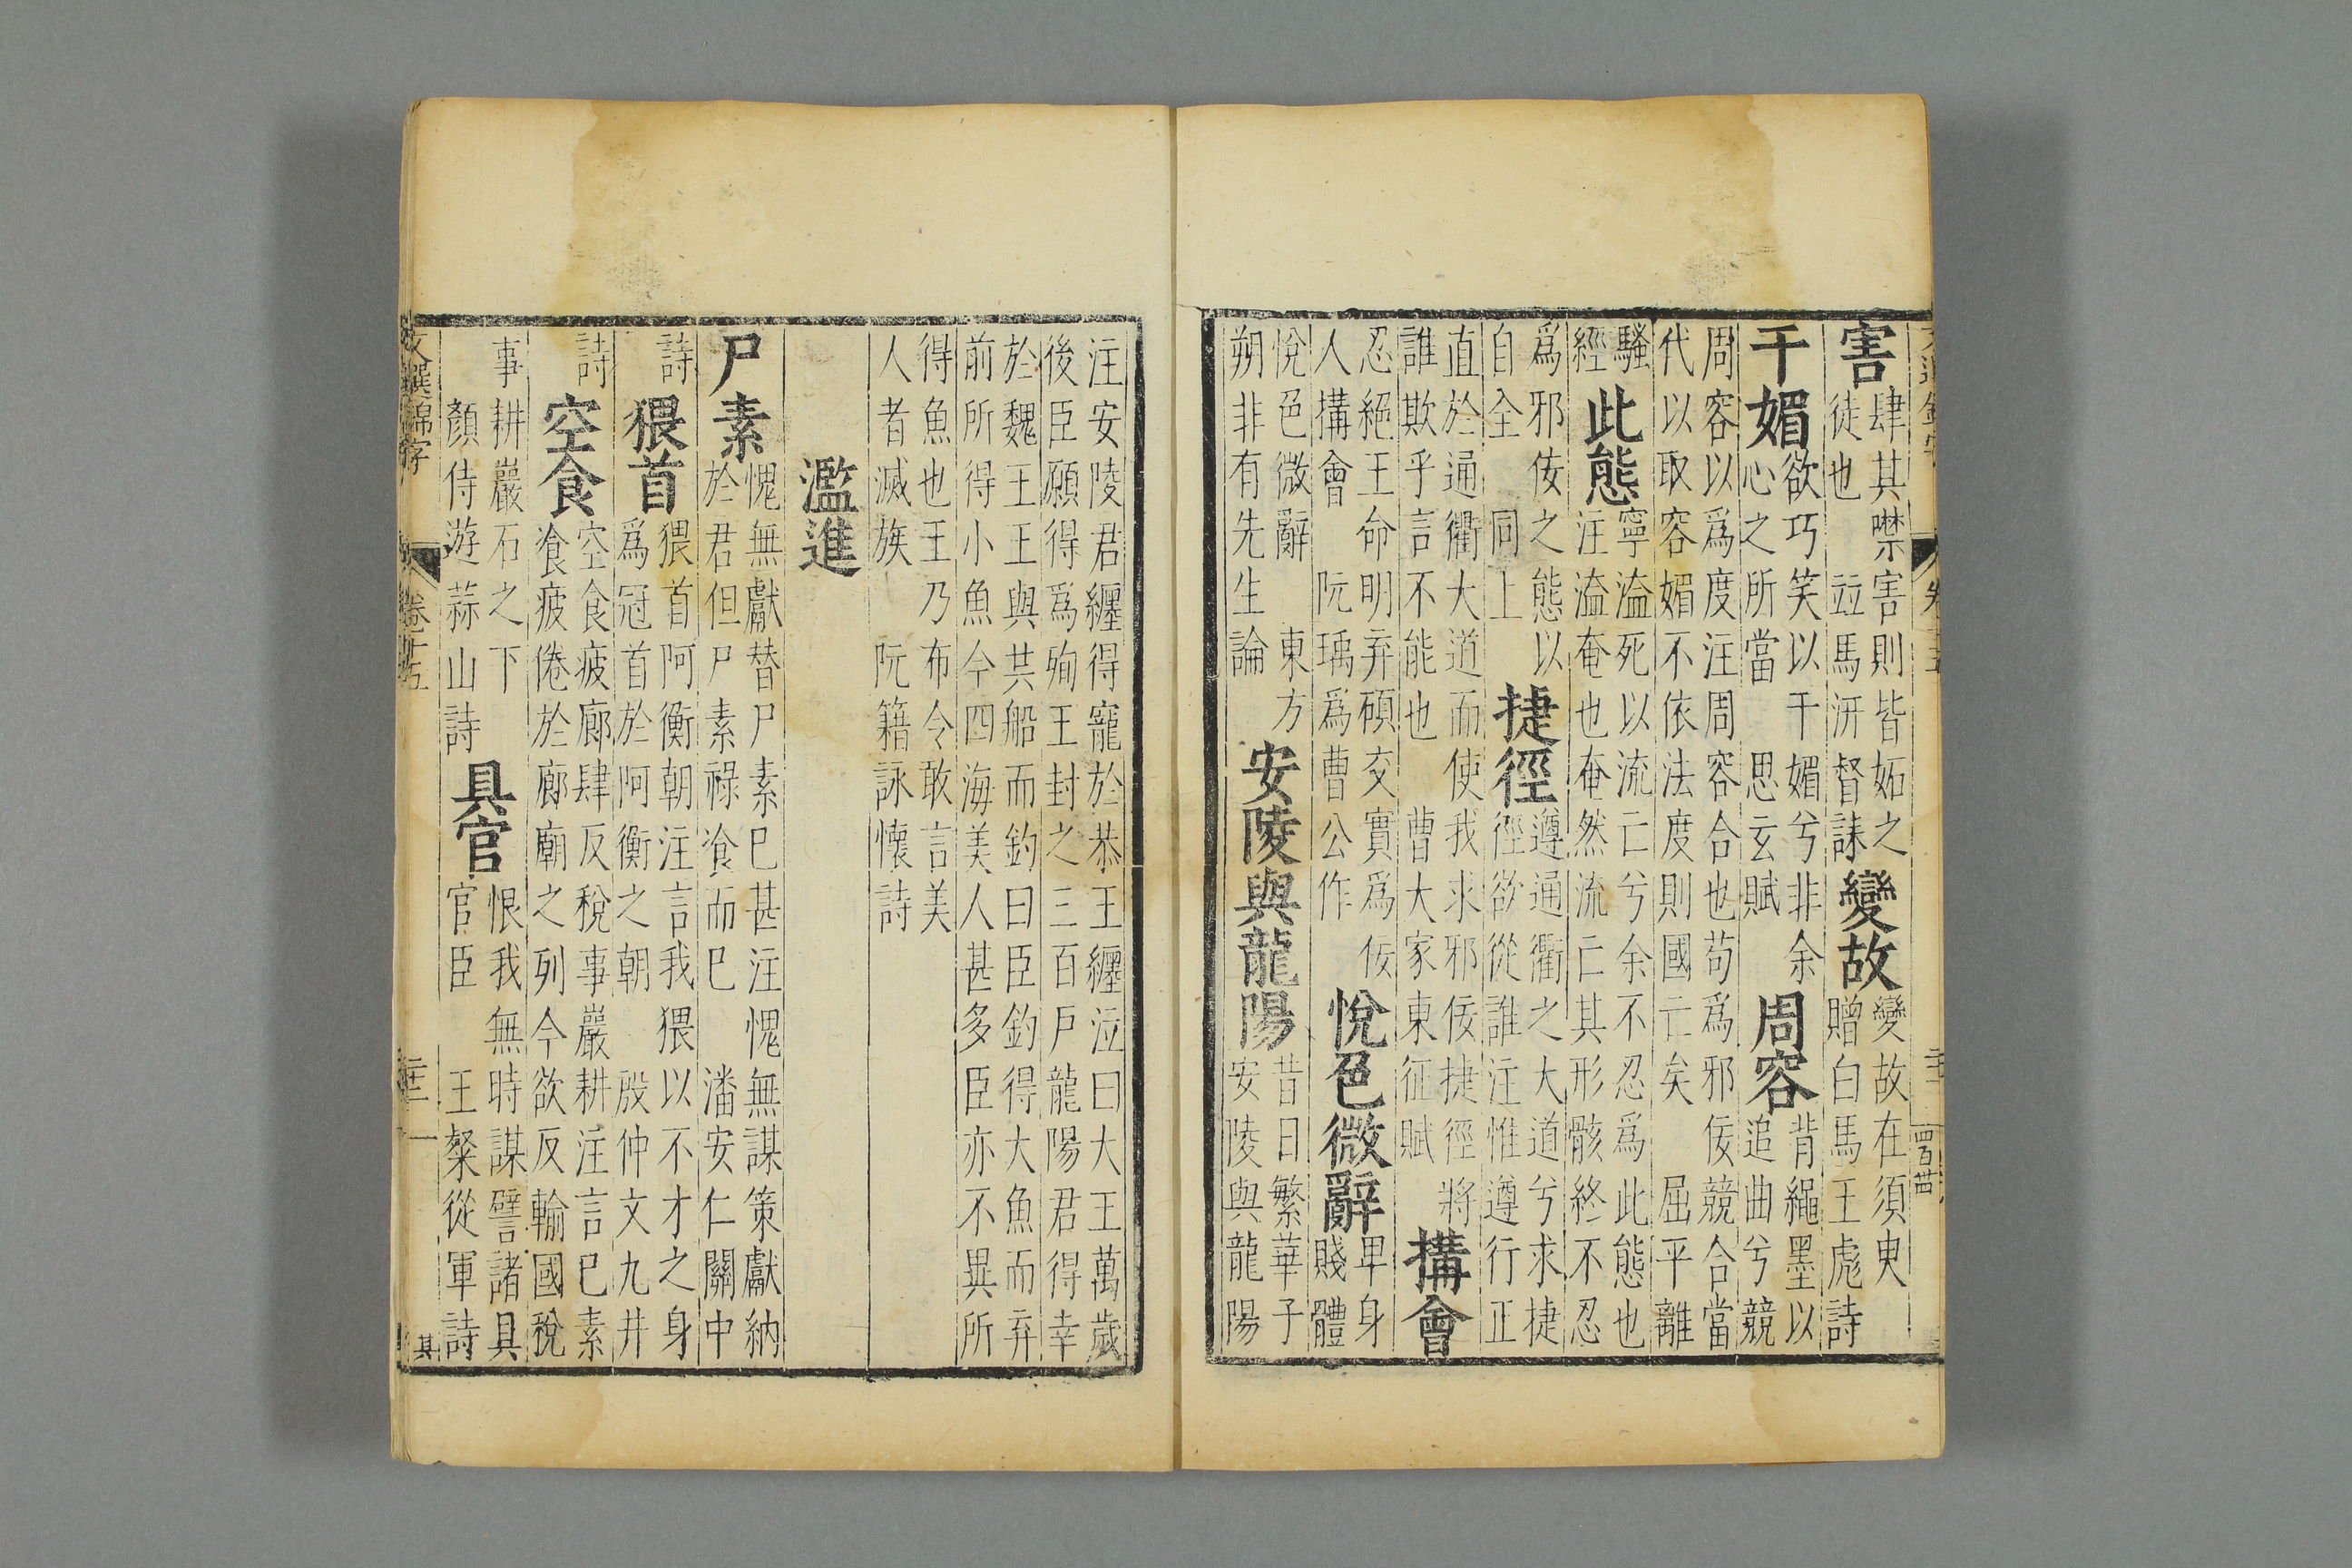 害肆其噤害則皆妬之
徒也 竝馬汧督誄
變故變故在須臾
贈白馬王彪詩
干媚欲巧笑以干媚兮非余
心之所當 思玄賦
周容背繩墨以
追曲兮競
周容以爲度注周容合也苟爲邪佞競合當
代以取容媚不依法度則國亡矣 屈平離
騷
經
此態寧溘死以流亡兮余不忍爲此態也
注溘奄也奄然流亡其形骸終不忍
爲邪佞之態以
自全 同上
捷徑遵通衢之大道兮求捷
徑欲從誰注惟遵行正
直於通衢大道而使我求邪佞捷徑將
誰欺乎言不能也 曹大家東征賦
搆會
忍絕王命明弃碩交實爲佞
人搆會 阮瑀爲曹公作
悅色微辭卑身
賤體
悅色微辭 東方
朔非有先生論
安陵與龍陽昔日繁華子
安陵與龍陽
注安陵君纏得寵於恭王纏泣曰大王萬歲
後臣願得爲殉王封之三百戶龍陽君得幸
於魏王王與共船而釣曰臣釣得大魚而弃
前所得小魚今四海美人甚多臣亦不異所
得魚也王乃布令敢言美
人者滅族 阮籍詠懷詩
濫進
尸素愧無獻替尸素已甚注愧無謀策獻納
於君但尸素祿飡而已 潘安仁關中
詩
猥首猥首阿衡朝注言我猥以不才之身
爲冠首於阿衡之朝 殷仲文九井
詩
空食空食疲廊肆反稅事巖耕注言已素
飡疲倦於廊廟之列今欲反輸國稅
事耕巖石之下
顏侍游蒜山詩
具官恨我無時謀譬諸具
官臣 王粲從軍詩
文選錦字 卷十五 二十二 其